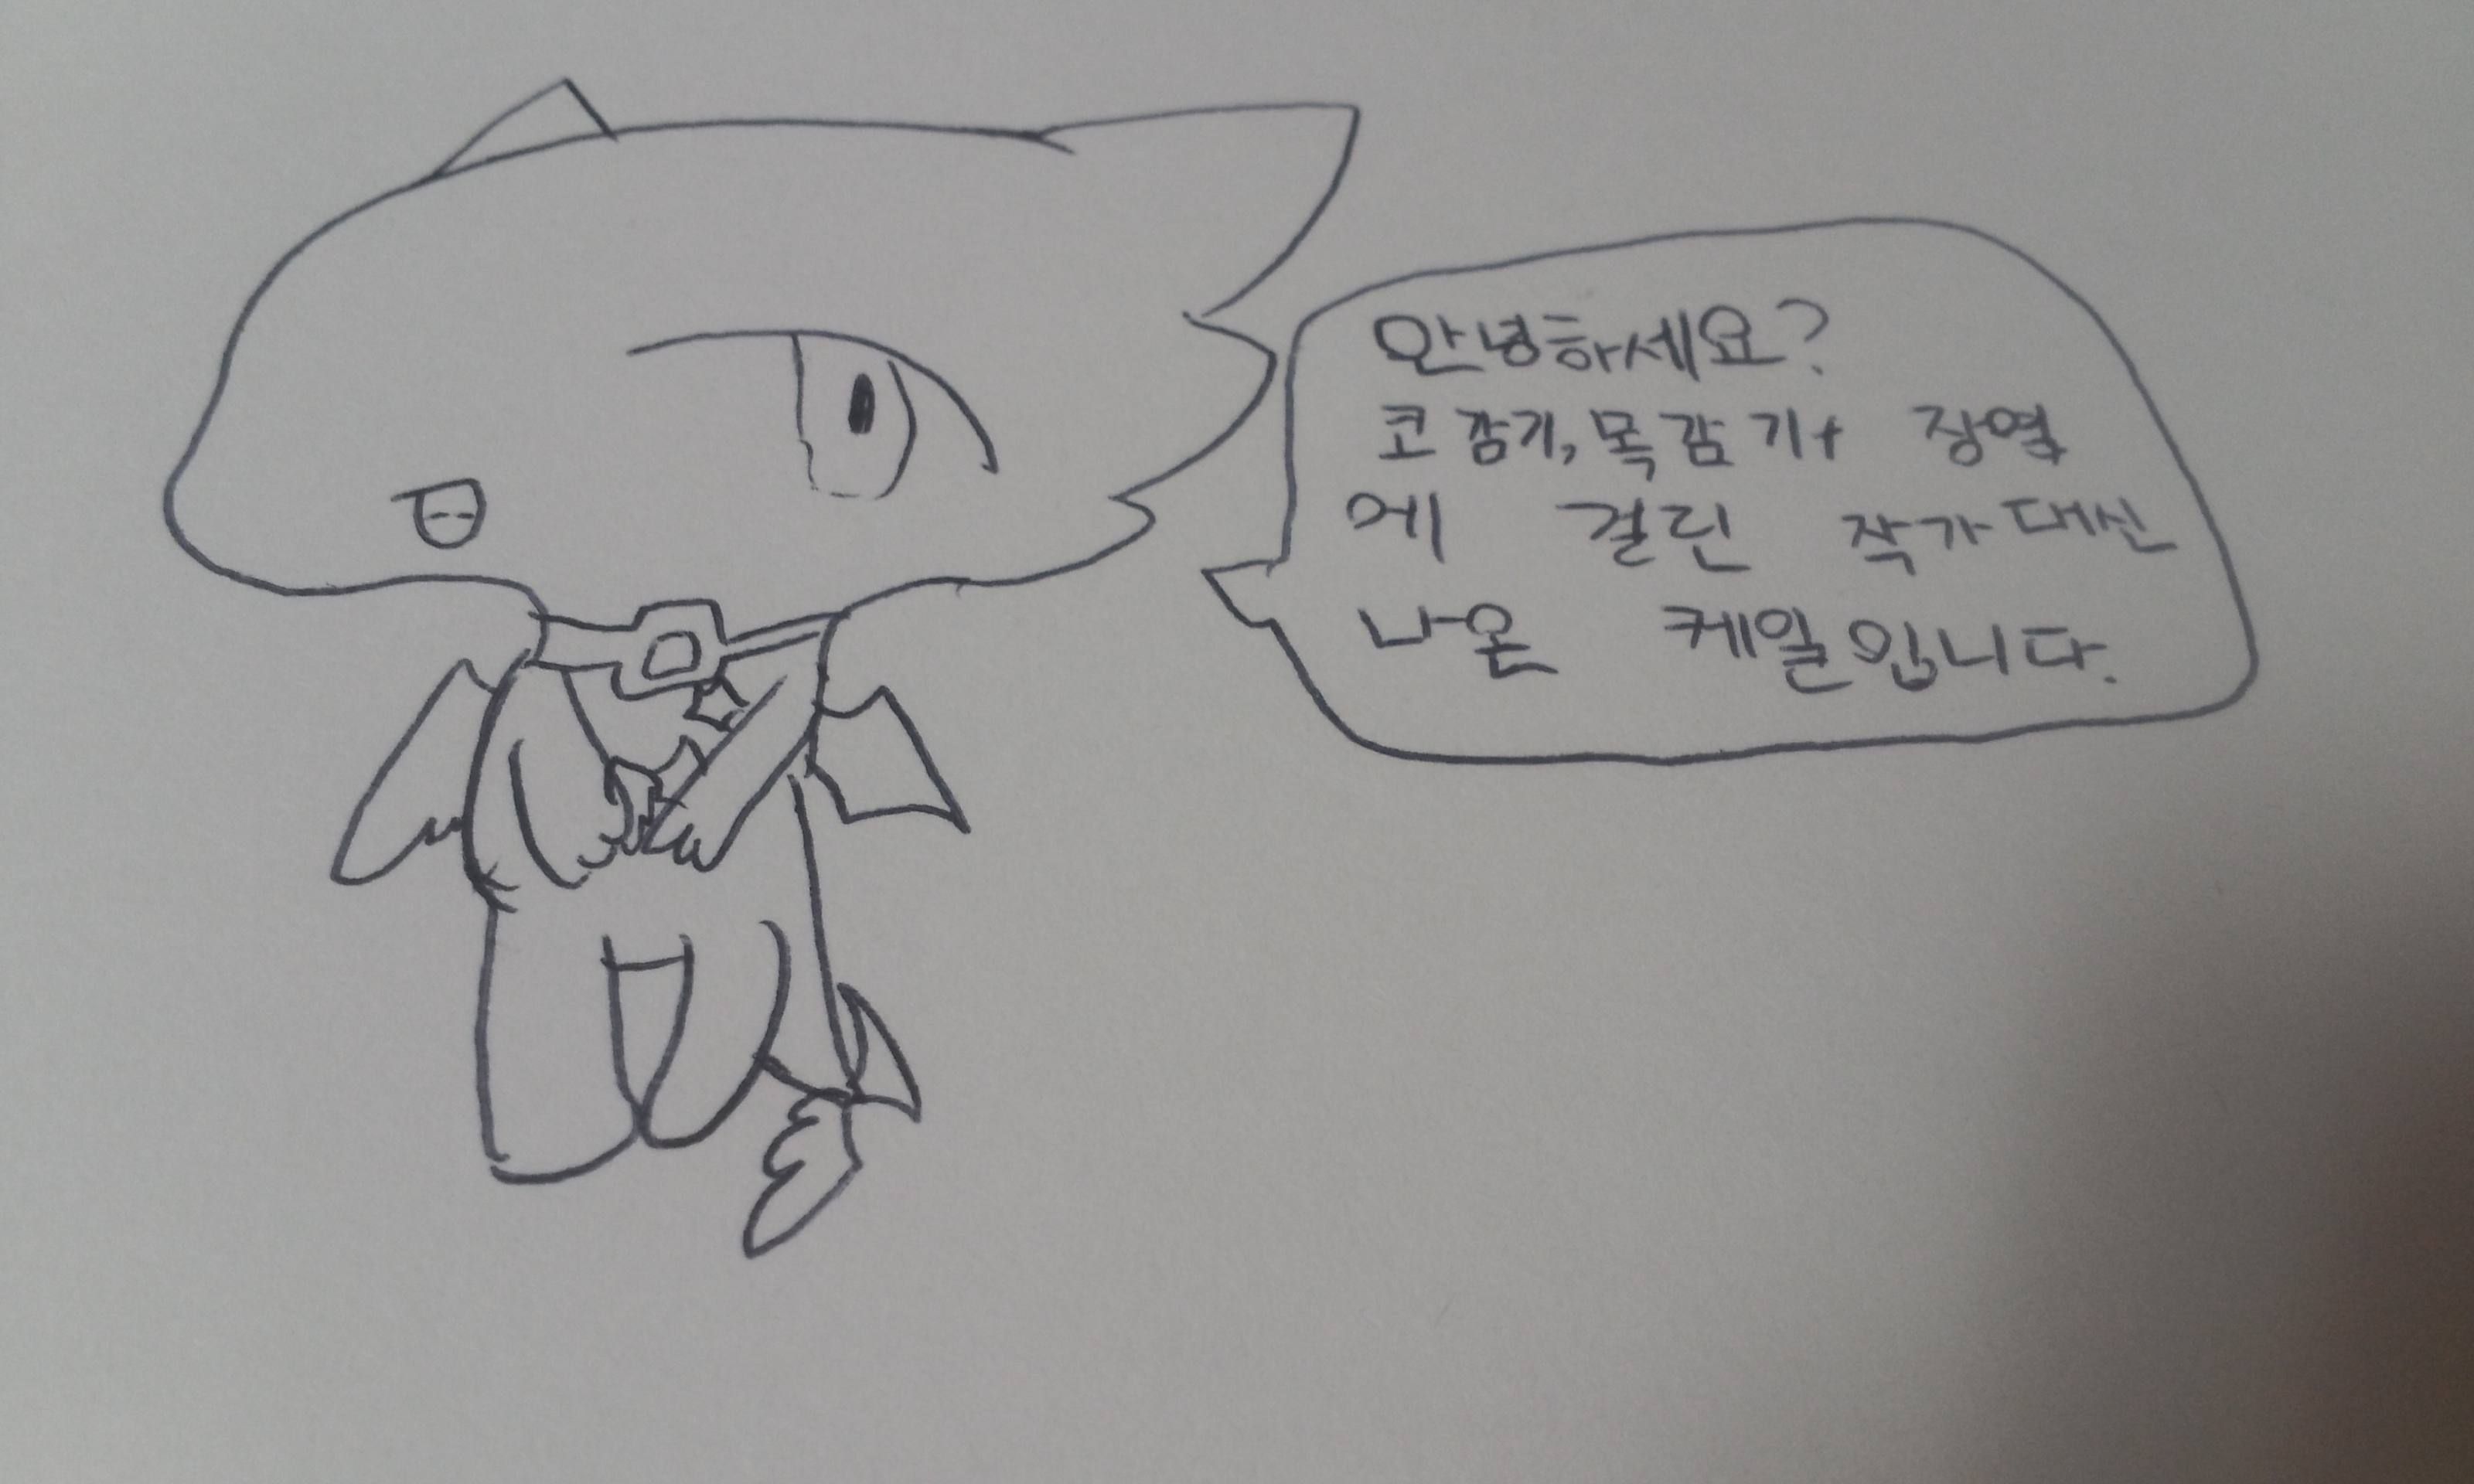 안녕하세요?
코감기,목감기+ 장염
에 걸린 작가대신
나온 케일입니다.